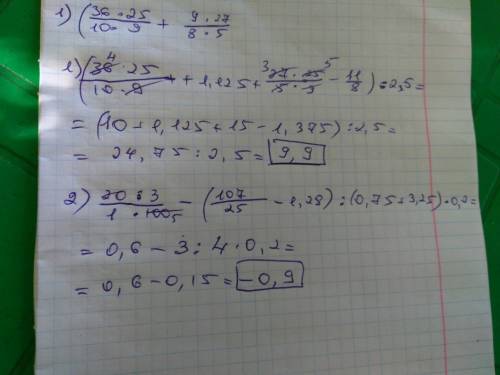 1) (36 · 25 / 10 · 9 + 9 · 27 / 8 · 5
1) (36 4 · 25 / 10 · 9 + 1,125 + 3 27 · 25 5 / 5 · 9 - 11/8) : 2,5 =
= (10 + 1,125 + 15 - 1,375) : 2,5 =
= 24,75 : 2,5 = 9,9
2) 20 · 3 / 1 · 100 5 - (107/25 - 1,28) : (0,75 + 3,25) · 0,2 =
= 0,6 - 3 : 4 · 0,2 =
= 0,6 - 0,15 = -0,9